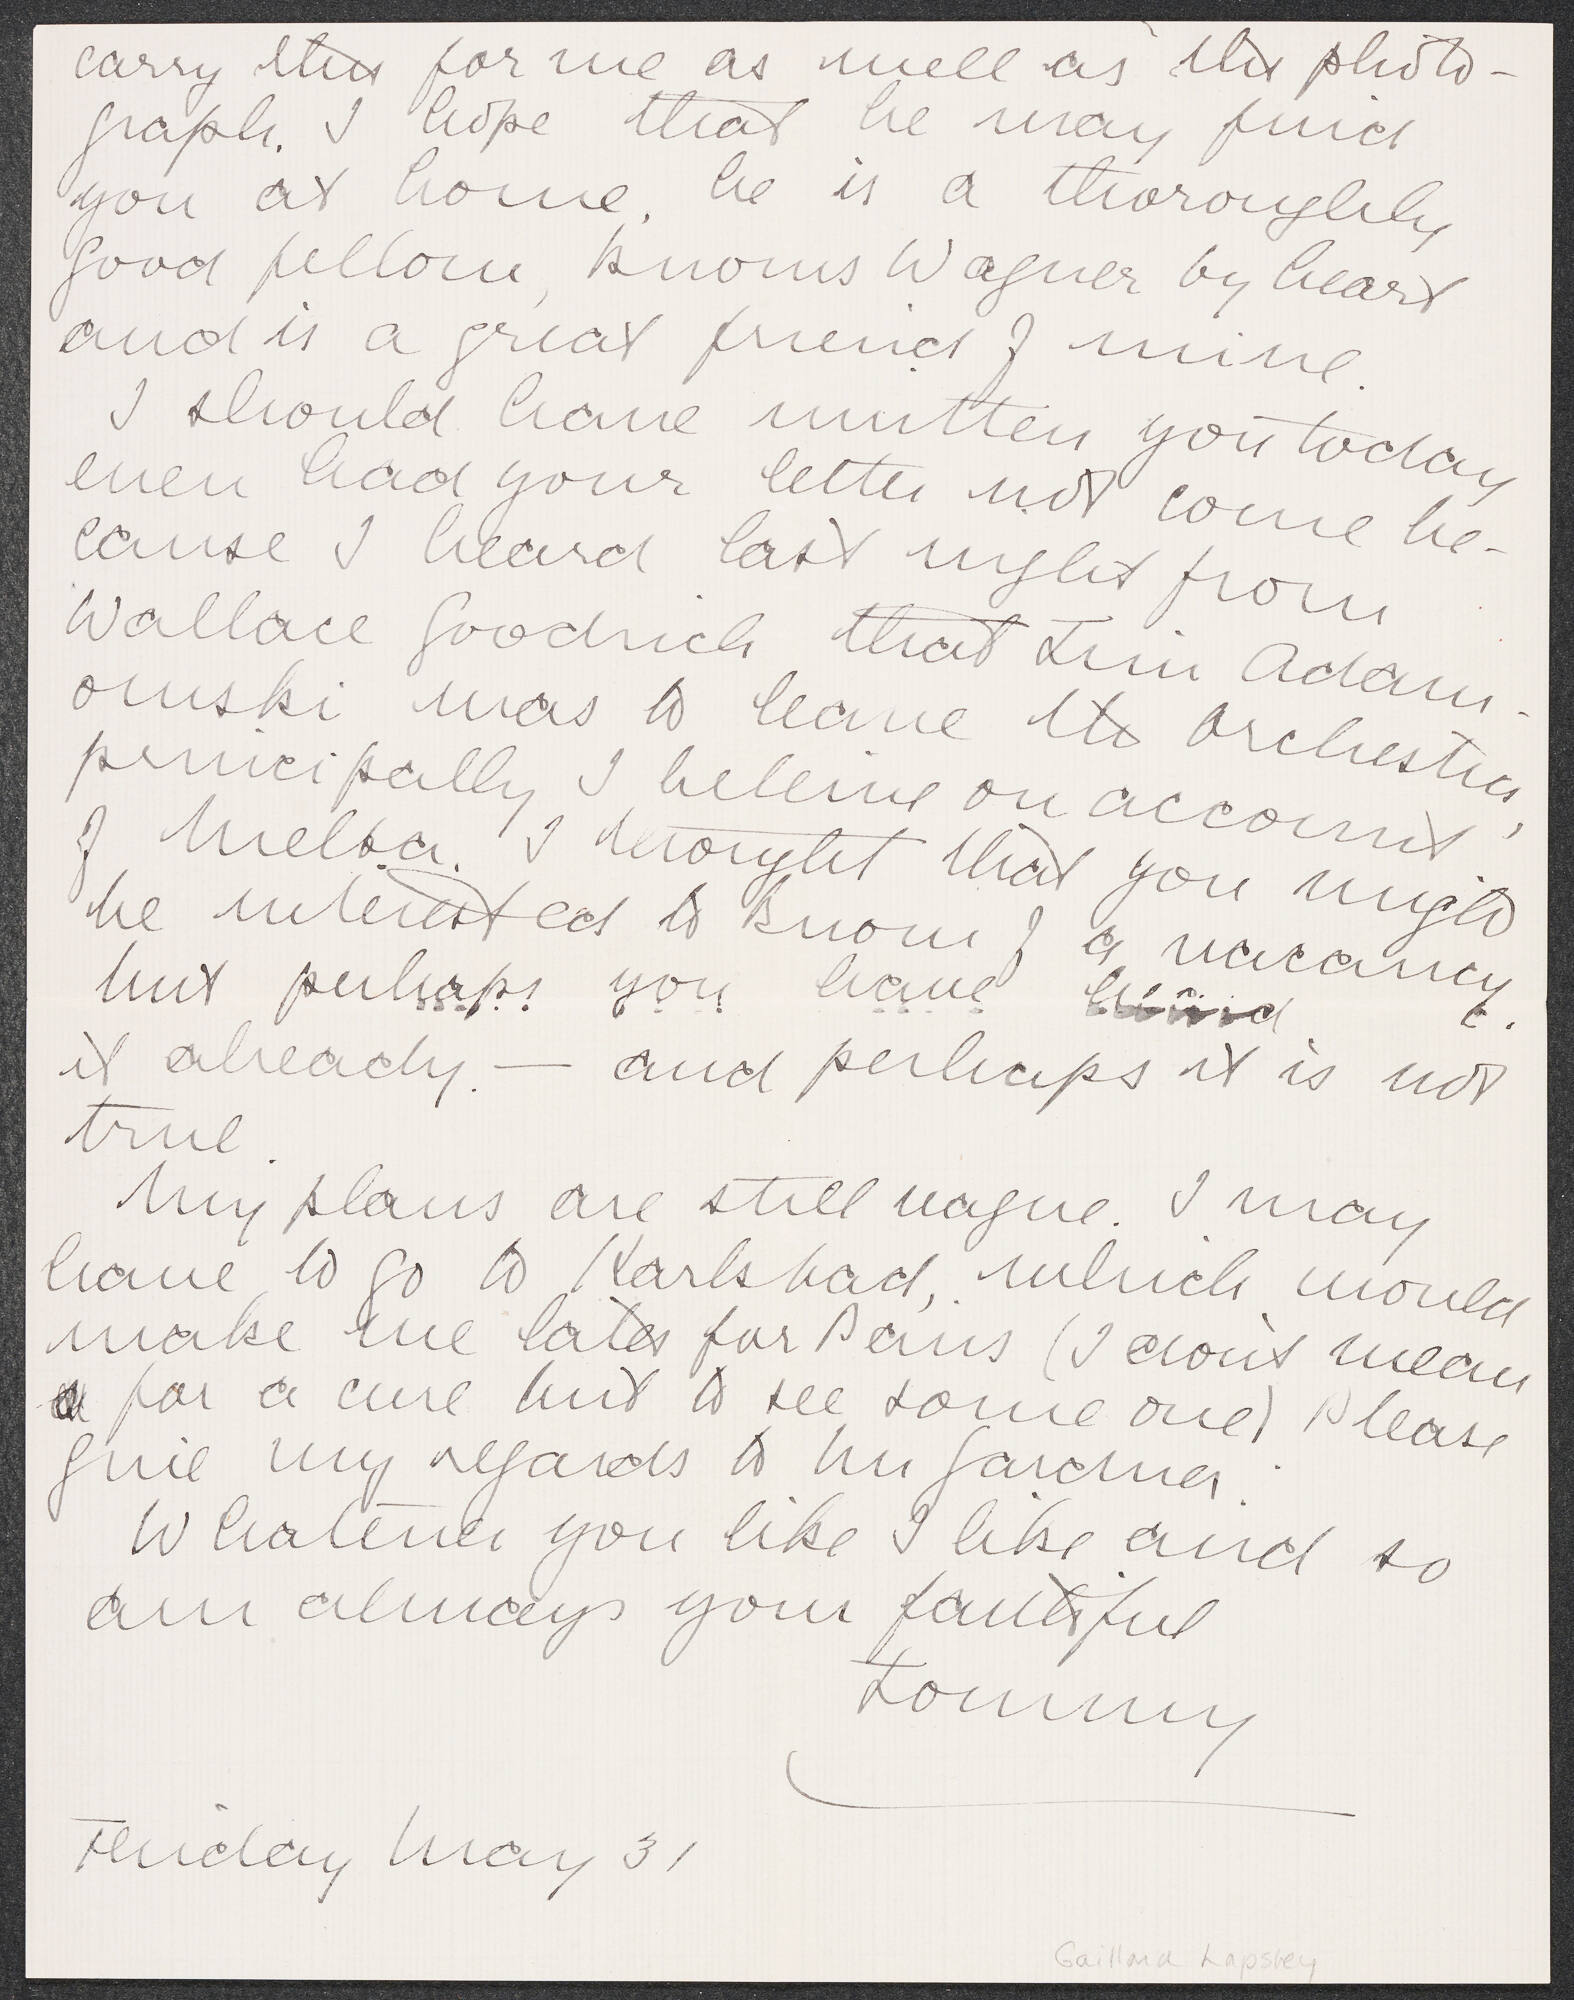 carry this for me as well as the photo-
graph. I hope that he may find
you at home, he is a thoroughly
good fellow, knows Wagner by heart
and is a great friend of mine.
I should have written you today
even had your letter not come be-
cause I heard last night from
Wallace Goodrich that Tim Adam-
owski was to leave the Orchestra,
principally I believe on account
of Melba. I thought that you might
be interested to know of a vacancy.
but perhaps you have heard
it already. — and perhaps it is not
true.
My plans are still vague. I may
have to go to Karlsbad, which would
make me late for Paris (I don't mean
for a cure but to see some one) Please
give my regards to Mr Gardner.
Whatever you like I like and so
am always your faithful
Tommy
Friday May 31
Gaillard Lapsley